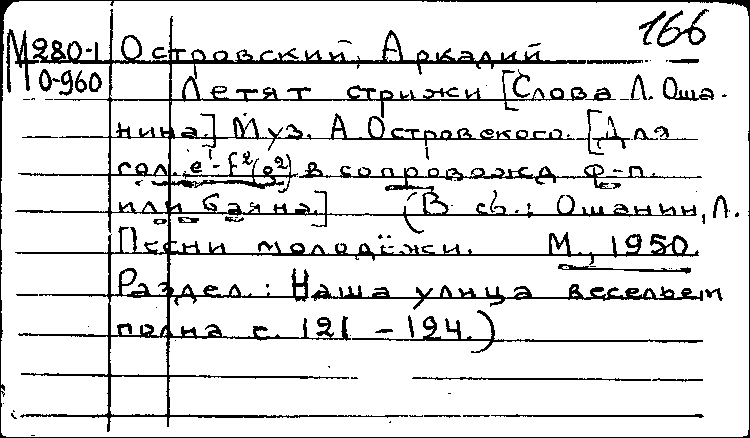 166
М280-1 Островский, Аркадий
М0-960
Летят стрижи [Слова Л. Оша-
нина.] Муз. А. Островского. [Для
гол. e¹-f²(g²) в сопровожд ф-п.
или баяна.] (В сб.: Ошанин, Л.
Песни молодёжи. М., 1950.
Раздел.: Наша улица весельем
полна с. 121 - 124.)